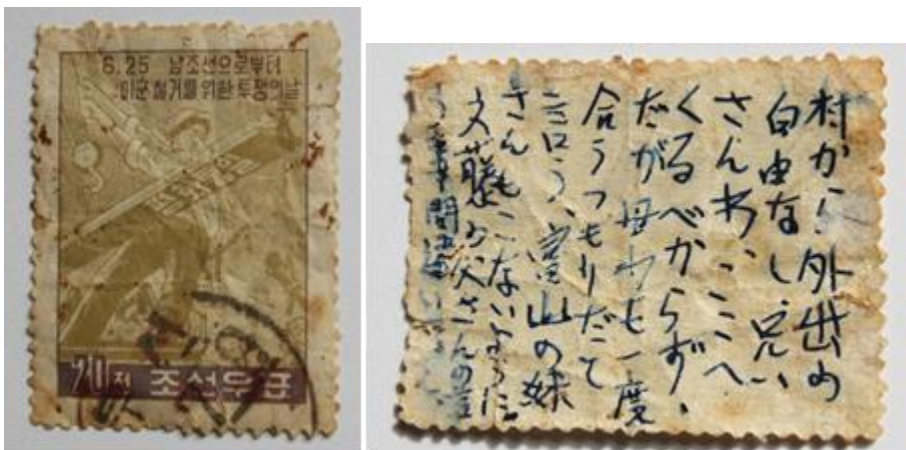 6.25 남조선으로부터
미군 철거를 위한 투쟁의날
20전 조선우표
村から外出の
自由なし、兄い
さんわ、ここへ
くるべからず、
だが母わも一度
合うつもりだて
言ロう、富山の妹
さんもこないように
文藤お父さんの言